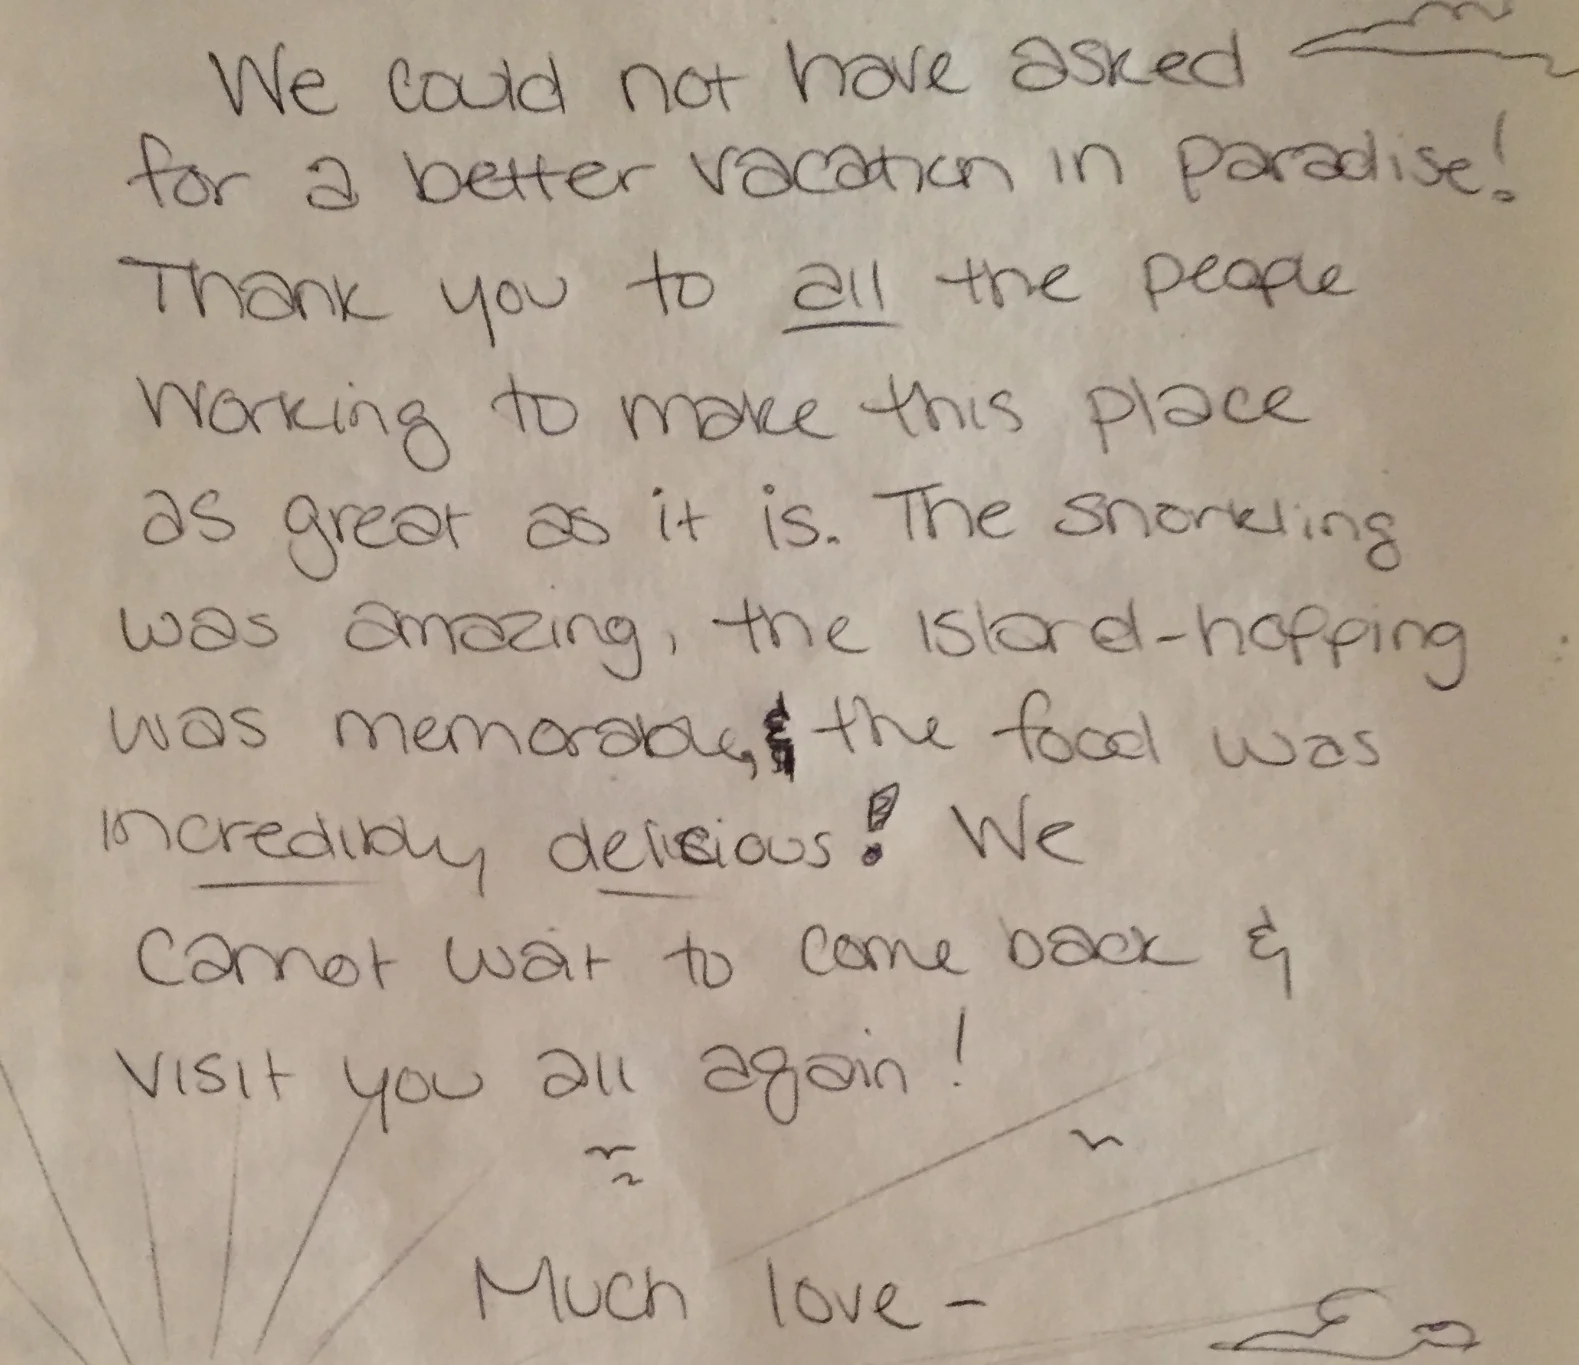 We could not have asked
for a better vacation in paradise!
Thank you to all the people
working to make this place
as great as it is. The snorkling
was amazing, the island-hopping
was memorable, & the food was
incredibly delicious! We
cannot wait to come back &
visit you all again!
Much love-